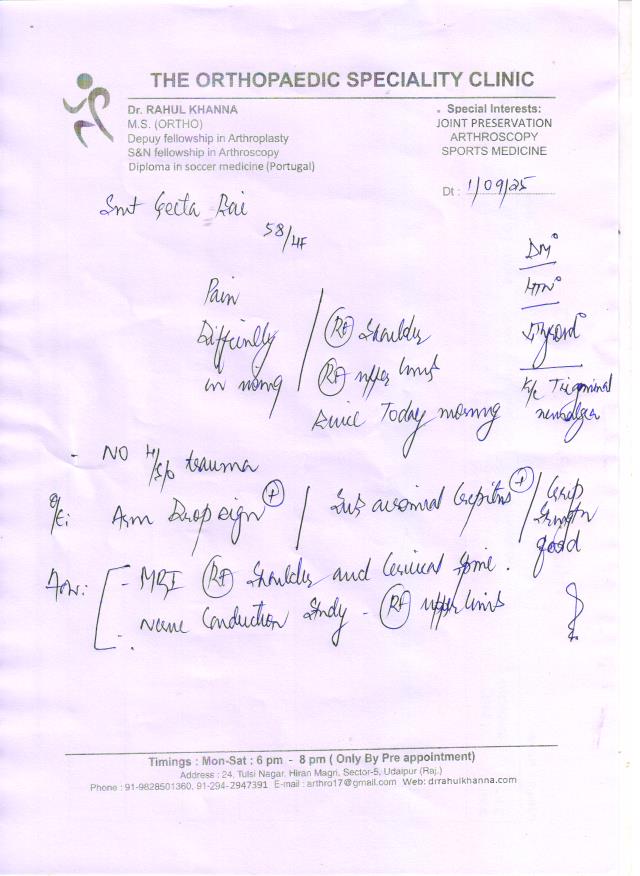 THE ORTHOPAEDIC SPECIALITY CLINIC
Dr. RAHUL KHANNA
M.S. (ORTHO)
Depuy fellowship in Arthroplasty
S&N fellowship in Arthroscopy
Diploma in soccer medicine (Portugal)
Special Interests:
JOINT PRESERVATION
ARTHROSCOPY
SPORTS MEDICINE
Dt : 1/09/25
Smt Geeta Rai
58/F
DM°
HTN°
Thyroid°
K/c Trigeminal
neuralgia
Pain
Difficulty
in using
(Rt) Shoulder
(Rt) upper limb
Since Today morning
- NO H/o trauma
O/E: Arm Drop sign (+) / Sub acromial Crepitus (+) / Grip
Strength
good
Adv: - MRI (Rt) Shoulder and Cervical Spine.
- Nerve Conduction Study - (Rt) upper limb
Timings : Mon-Sat : 6 pm - 8 pm ( Only By Pre appointment)
Address : 24, Tulsi Nagar, Hiran Magri, Sector-5, Udaipur (Raj.)
Phone : 91-9828501360, 91-294-2947391 E-mail : arthro17@gmail.com Web: drrahulkhanna.com